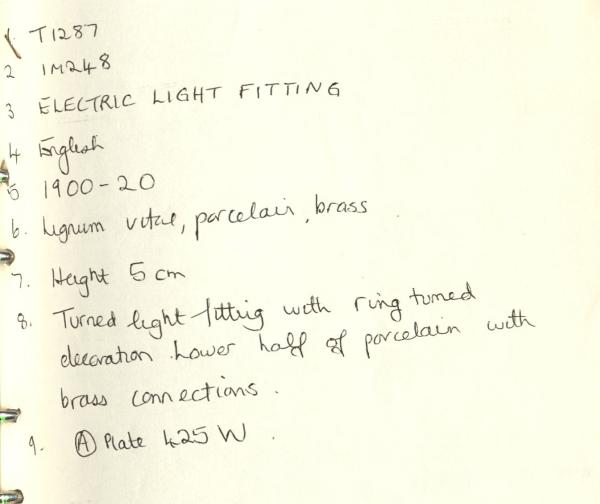 1 T1287
2 IM248
3 ELECTRIC LIGHT FITTING
4 English
5 1900-20
6. Lignum vitae, porcelain, brass
7. Height 5 cm
8. Turned light fitting with ring turned
decoration. Lower half of porcelain with
brass connections.
9. Ⓐ Plate 425 W.